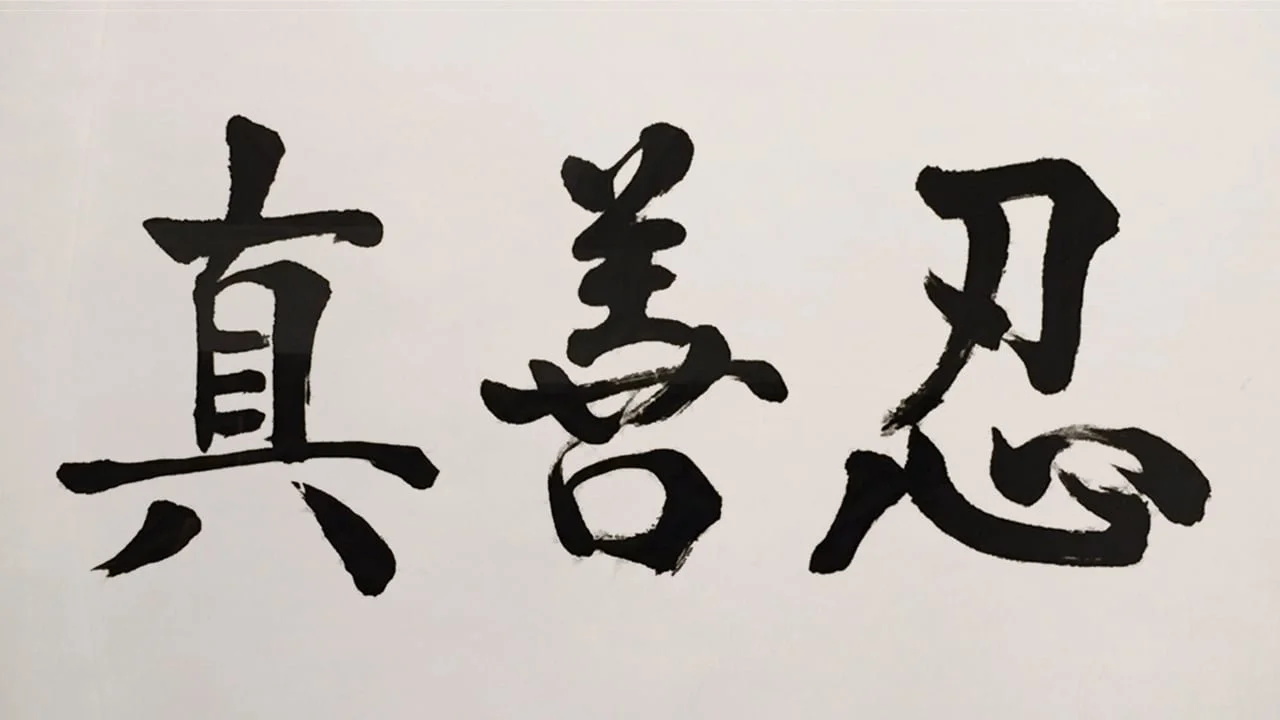 真善忍